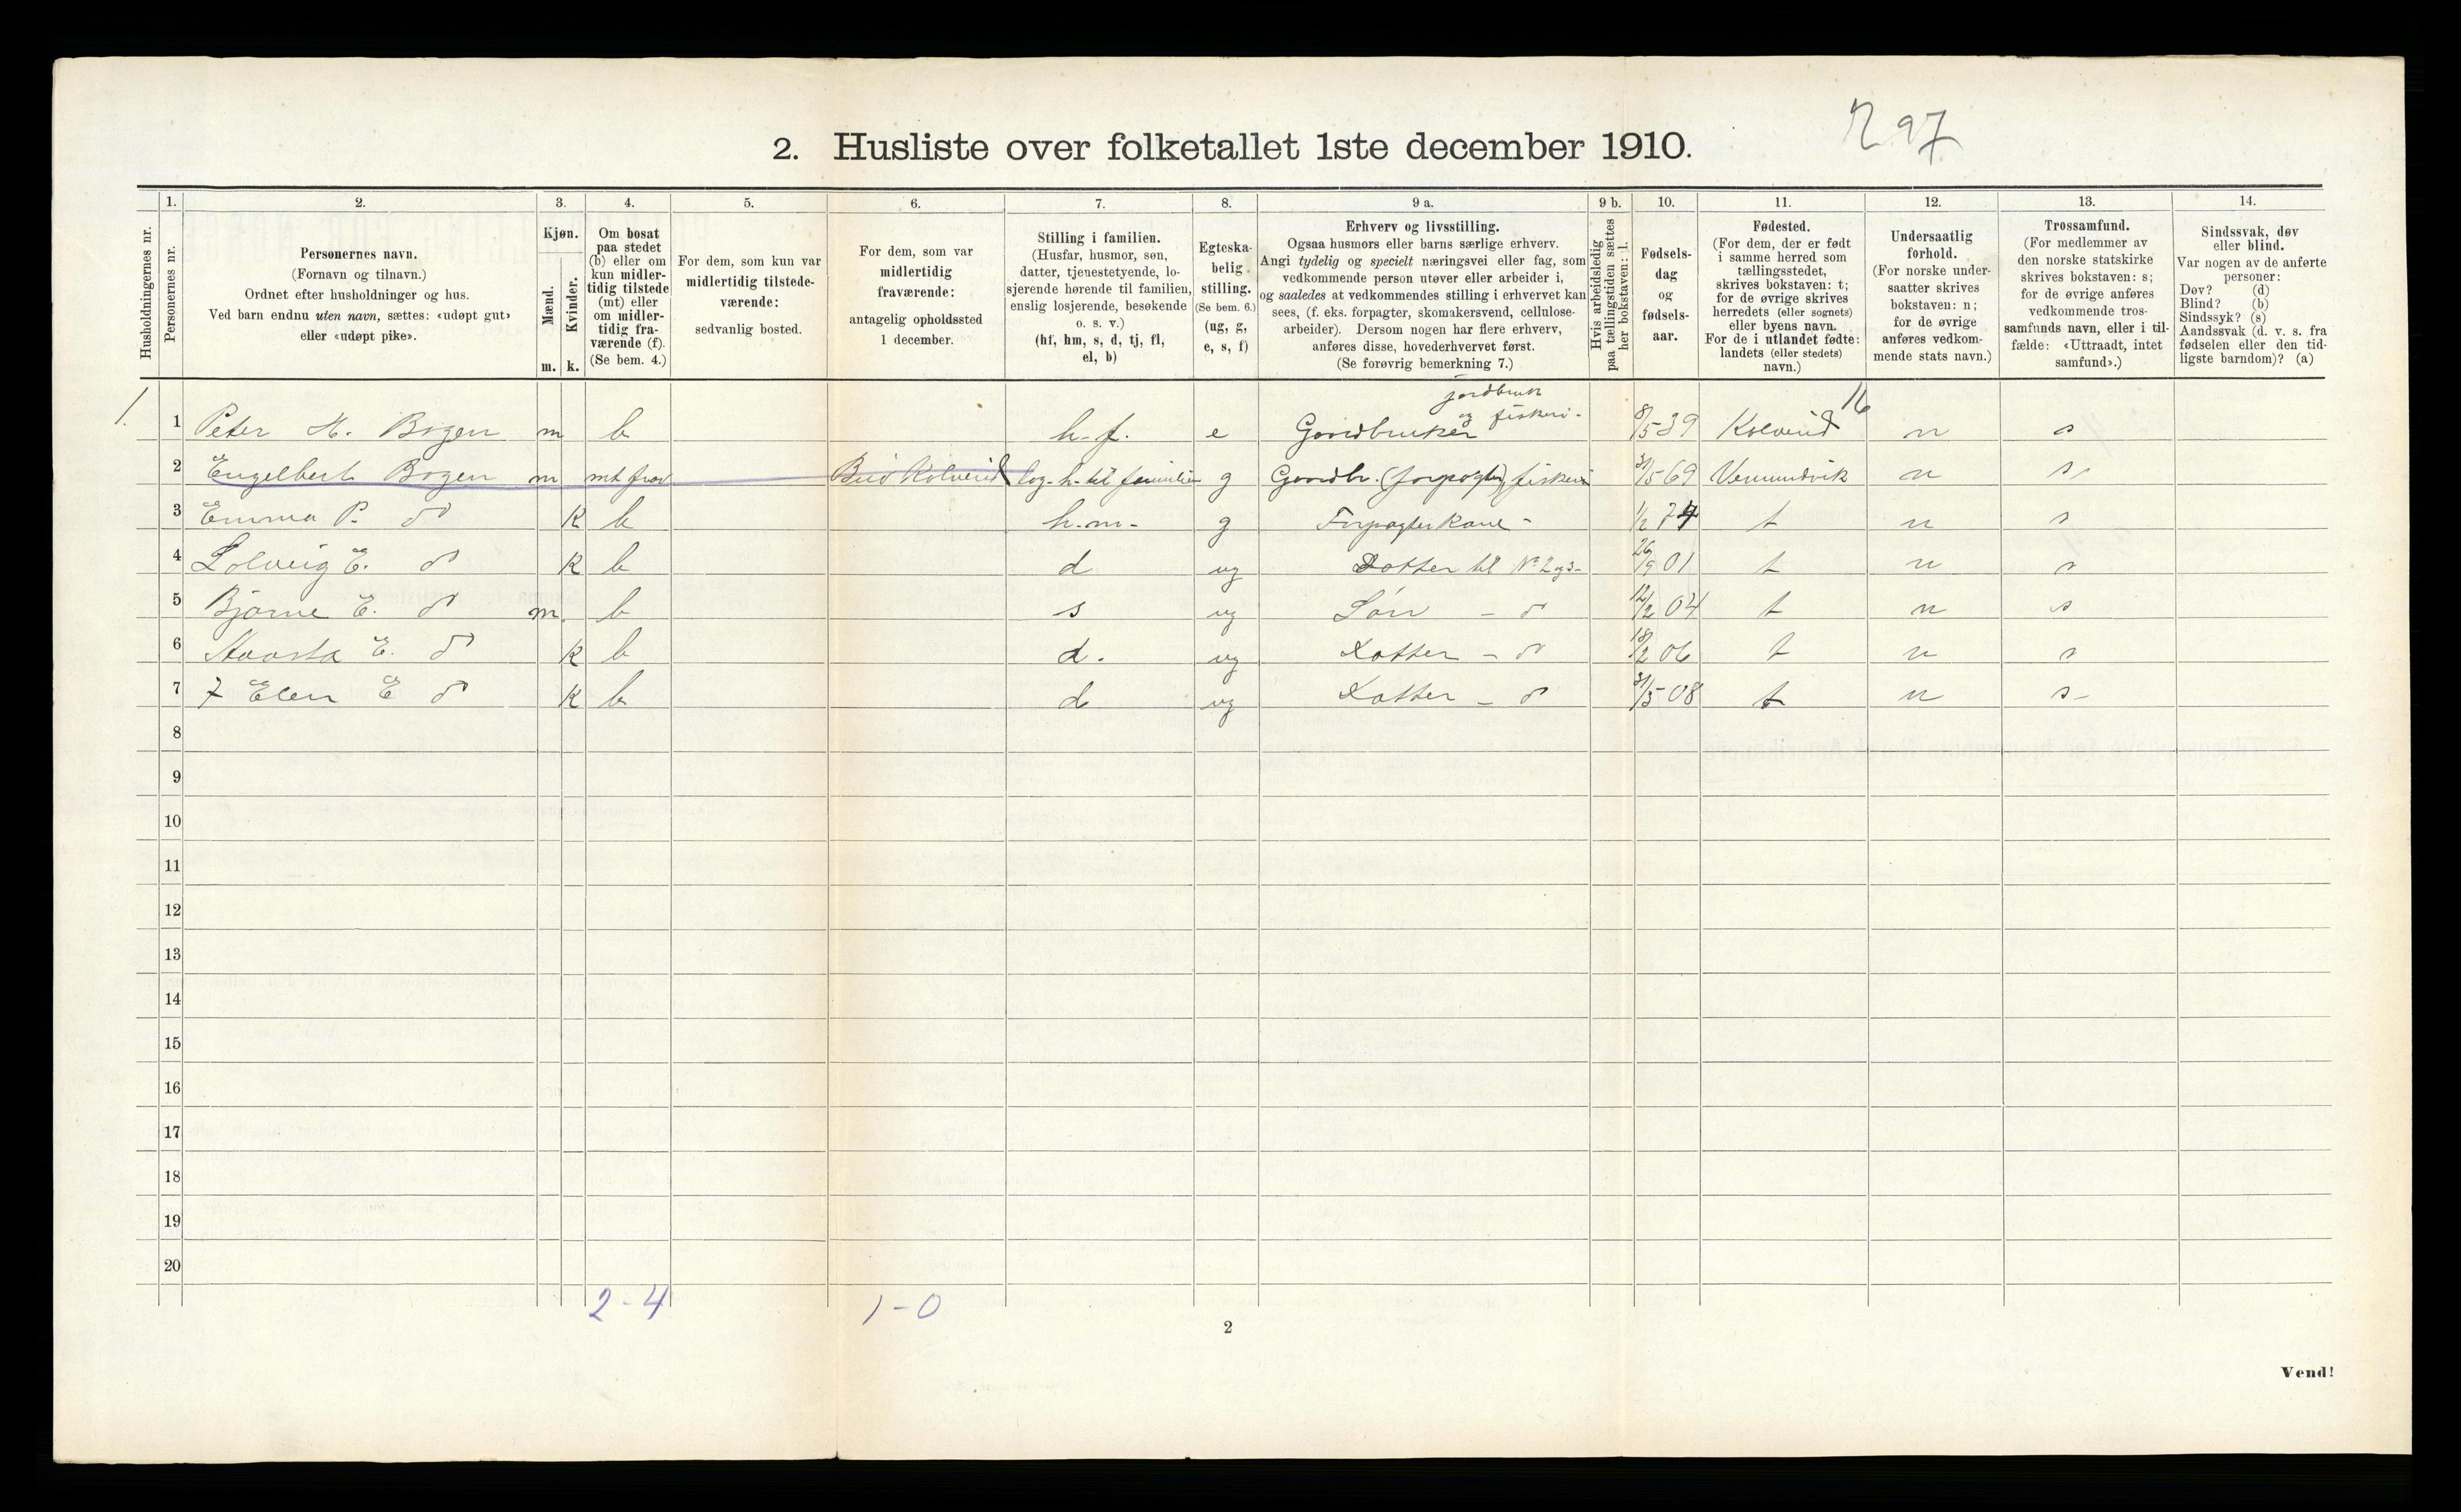 2. Husliste over folketallet 1ste december 1910.
297
Husholdningernes nr.
1.
Personernes nr.
2.
Personernes navn.
(Fornavn og tilnavn.)
Ordnet efter husholdninger og hus.
Ved barn endnu uten navn, sættes: «udøpt gut»
eller «udøpt pike».
3.
Kjøn.
Mænd.
Kvinder.
m. k.
4.
Om bosat
paa stedet
(b) eller om
kun midler-
tidig tilstede
(mt) eller
om midler-
tidig fra-
værende (f).
(Se bem. 4.)
5.
For dem, som kun var
midlertidig tilstede-
værende:
sedvanlig bosted.
6.
For dem, som var
midlertidig
fraværende:
antagelig opholdssted
1 december.
7.
Stilling i familien.
(Husfar, husmor, søn,
datter, tjenestetyende, lo-
sjerende hørende til familien,
enslig losjerende, besøkende
o. s. v.)
(hf, hm, s, d, tj, fl,
el, b)
8.
Egteska-
belig
stilling.
(Se bem. 6.)
(ug, g,
e, s, f)
9 a.
Erhverv og livsstilling.
Ogsaa husmors eller barns særlige erhverv.
Angi tydelig og specielt næringsvei eller fag, som
vedkommende person utøver eller arbeider i,
og saaledes at vedkommendes stilling i erhvervet kan
sees, (f. eks. forpagter, skomakersvend, cellulose-
arbeider). Dersom nogen har flere erhverv,
anføres disse, hovederhvervet først.
(Se forøvrig bemerkning 7.)
9 b.
Hvis arbeidsledig
paa tællingstiden sættes
her bokstaven: l.
10.
Fødsels-
dag
og
fødsels-
aar.
11.
Fødested.
(For dem, der er født
i samme herred som
tællingsstedet,
skrives bokstaven: t;
for de øvrige skrives
herredets (eller sognets)
eller byens navn.
For de i utlandet fødte:
landets (eller stedets)
navn.)
12.
Undersaatlig
forhold.
(For norske under-
saatter skrives
bokstaven: n;
for de øvrige
anføres vedkom-
mende stats navn.)
13.
Trossamfund.
(For medlemmer av
den norske statskirke
skrives bokstaven: s;
for de øvrige anføres
vedkommende tros-
samfunds navn, eller i til-
fælde: «Uttraadt, intet
samfund».)
14.
Sindssvak, døv
eller blind.
Var nogen av de anførte
personer:
Døv? (d)
Blind? (b)
Sindssyk? (s)
Aandssvak (d. v. s. fra
fødselen eller den tid-
ligste barndom)? (a)
jordbruk
og fiskeri-
16
1. 1 Peter M. Bogen m b h.f. e Gaardbruker 8/5 39 Kolvereid n s
2 Engelbert Bogen m mt frav Kolvereid log. h. til familien g Gaardbr. (forpagter) fiskeri 31/5 69 Vemundvik n s
3 Emma P. do K b h.m- g Forpagterkone - 1/2 74 t n s
4 Solveig E. do K b d ug Datter til No 2 og 3- 26/9 01 t n s
5 Bjarne E. do m. b s ug Søn - do 12/2 04 t n s
6 E. do K b d. ug Datter - do 18/2 06 t n s
7 7 Elen E do K b d ug Datter - do 31/5 08 t n s-
8
9
10
11
12
13
14
15
16
17
18
19
20
2-4 1-0
2
Vend!